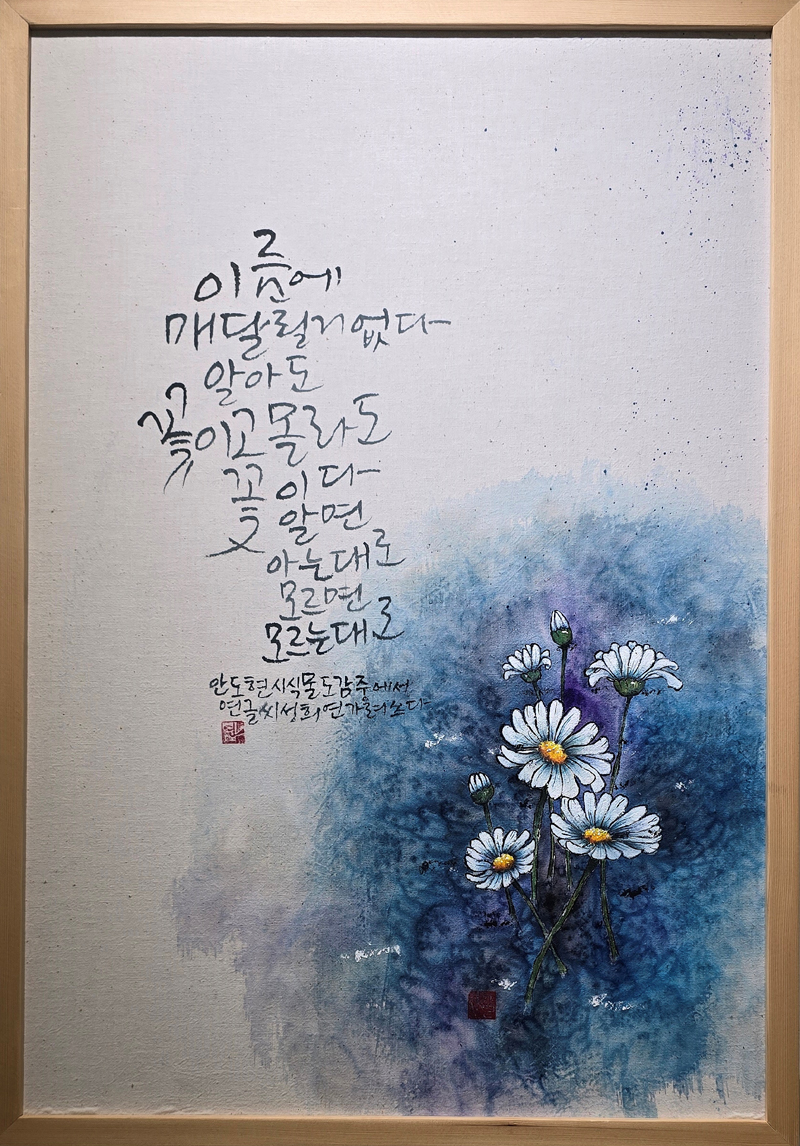 이름에
매달릴거없다
알아도
꽃이고몰라도
꽃이다
알면
아는대로
모르면
모르는대로
안도현시식물도감중에서
연글씨성희연가려쓰다